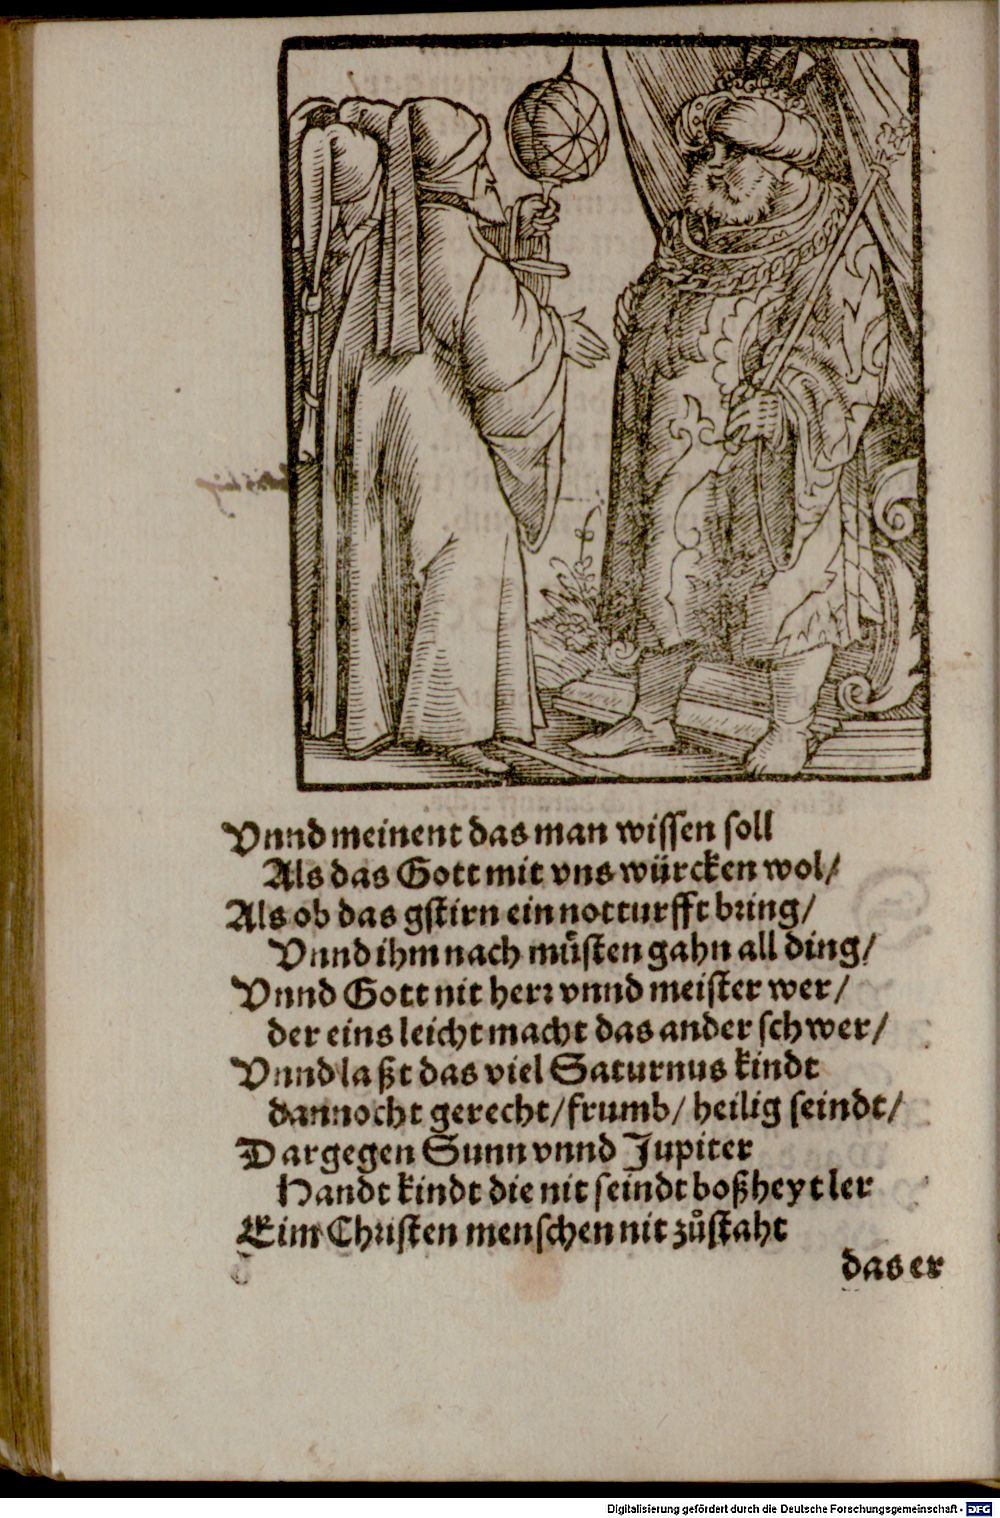 Vnnd meinent das man wissen soll
Als das Gott mit vns würcken wol/
Als ob das gstirn ein notturfft bring/
Vnnd ihm nach müsten gahn all ding/
Vnnd Gott nit herr vnnd meister wer/
der eins leicht macht das ander schwer/
Vnnd laßt das viel Saturnus kindt
dannocht gerecht/ frumb/ heilig seindt/
Dargegen Sunn vnnd Jupiter
Handt kindt die nit seindt boßheyt ler
Eim Christen menschen nit zůstaht
das er
Digitalisierung gefördert durch die Deutsche Forschungsgemeinschaft - DFG